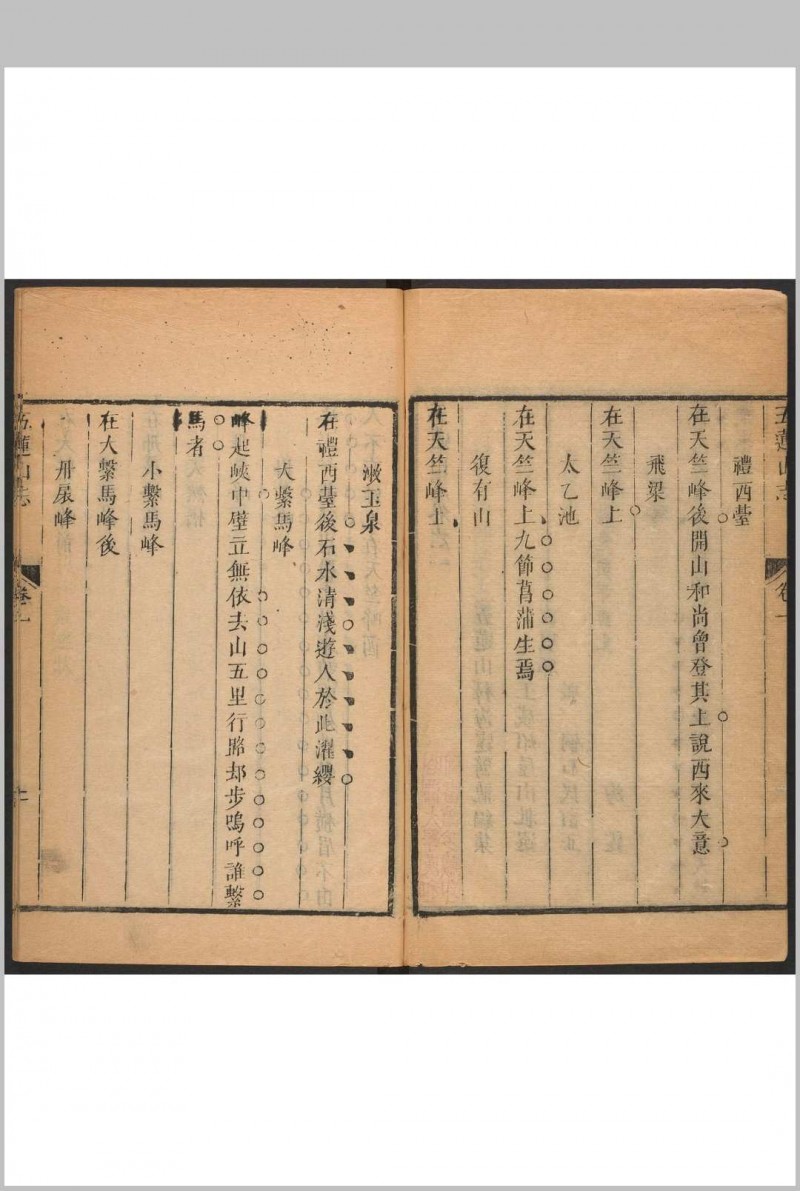 五蓮山志
卷一
禮西䑓
在天竺峰後開山和尚曾登其上說西來大意
飛梁
在天竺峰上
太乙池
在天竺峰上九節菖蒲生焉
復有山
在天竺峰上
漱玉泉
在禮西䑓後石水清淺遊人於此濯纓
大繫馬峰
峰起峽中壁立無依去山五里行路却步嗚呼誰繫
馬者
小繫馬峰
在大繫馬峰後
丹扆峰
五蓮山志
卷一